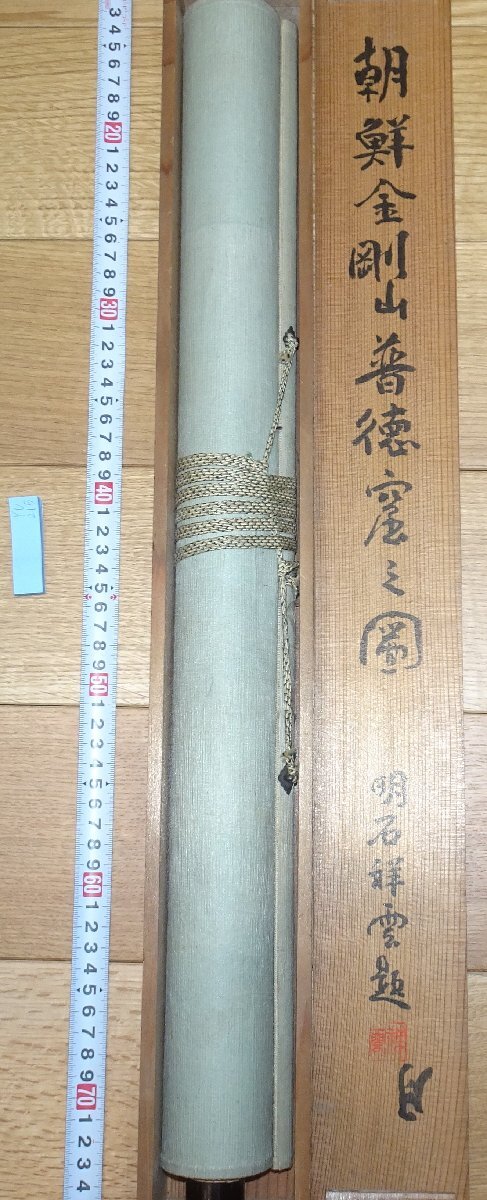 朝鮮金剛山普德窟之圖
明石祥雲題
月
3 4 5 6 7 8 9 20 1 2 3 4 5 6 7 8 9 30 1 2 3 4 5 6 7 8 9 40 1 2 3 4 5 6 7 8 9 50 1 2 3 4 5 6 7 8 9 60 1 2 3 4 5 6 7 8 9 70 1 2 3 4